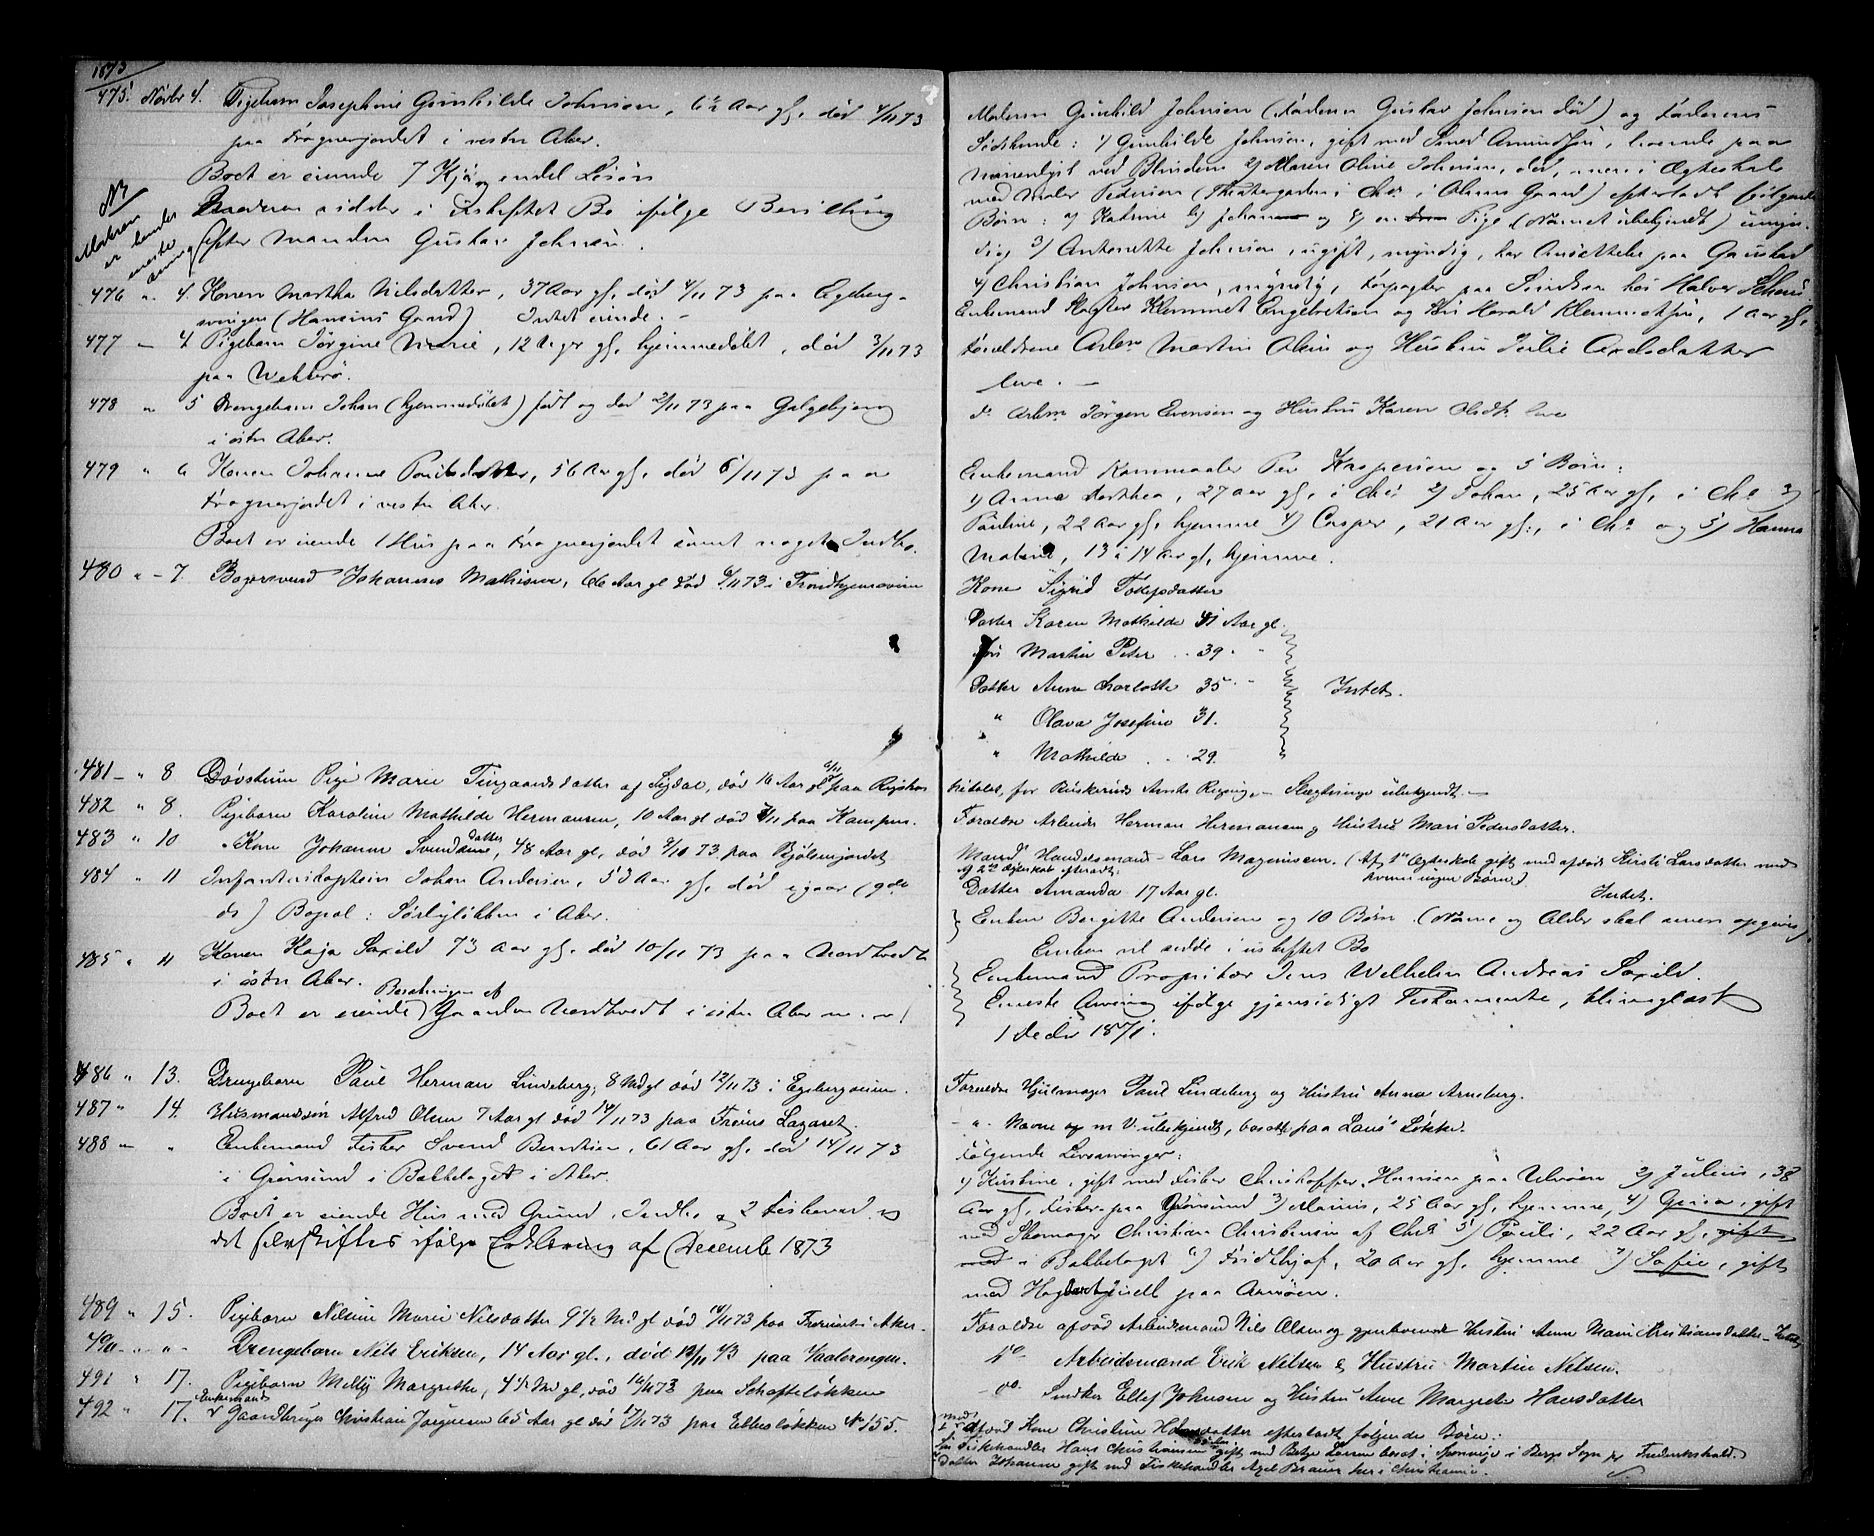 1873
475. Novbr 4. Pigebarn Josephine Gunhilde Johnsen, 6½ Aar gl., død 4/11 73
paa Frognerjordet i vestre Aker.
Boet er eiende 7 Kjør og endel Løsøre
NB
Moderen sidder i uskiftet Bo ifølge Bevilling
efter Manden Gustav Johnsen.
Moderen er hendes eneste Arving
476 " 4. Konen Martha Nilsdatter, 37 Aar gl., død 4/11 73 paa Egeberg-
svingen (Hansens Gaard) Intet eiende. -
477 — 4 Pigebarn Jørgine Marie, 12 Dage gl., hjemmedøbt, død 3/11 73
paa Wekkerø.
478 " 5 Drengebarn Johan (hjemmedøbt) født og død 2/11 73 paa Galgebjerg
i østre Aker.
479 " 6 Konen Johanne Poulsdatter, 56 Aar gl., død 5/11 73 paa
Frognerjordet i vestre Aker.
Boet er eiende 1 Hus paa Frognerjordet samt noget Indbo.
480 " - 7. Bøgersvend Johannes Mathisen, 66 Aar gl død 6/11 73 i Trondhjemsveien
481 - " 8 Døvstum Pige Marie Tingaardsdatter af Sigdal, død 16 Aar gl 6/11 paa Rigshos
482 " 8. Pigebarn Karoline Mathilde Hermansen, 10 Aar gl død 7/11 paa Kampen.
483 " 10 Kone Johanne Svendsdatter, 48 Aar gl, død 9/10 73 paa Bjølsenjordet
484 " 11 Infanterikaptein Johan Andersen, 53 Aar gl., død igaar (9de
ds) Bopæl: Sørbyløkken i Aker.
485 " 11 Konen Kaja Saxild 73 Aar gl. død 10/11 73 paa Nordtvedt
i østre Aker.
Besætningen af
Boet er eiende Gaarden Nordtvedt i østre Aker m. m.
486 " 13. Drengebarn Paul Herman Lindeberg, 8 Md gl død 12/11 73 i Egebergveien.
487 " 14. Husmandssøn Alfred Olsen 7 Aar gl død 14/11 73 paa Freies Lazaret.
488 — " Enkemand Fisker Svend Berntsen, 61 Aar gl. død 14/11 73
i Grønsund i Bakkelaget i Aker.
Boet er eiende Hus med Grund, Indbo og 2 Fiskevad og
det selvskiftes ifølge Erklæring af December 1873
489 " 15. Pigebarn Nilsine Marie Nilsdatter 9½ Md gl død 14/11 73 paa i Aker.
490 " " Drengebarn Nils Eriksen, 14 Aar gl., død 13/11 73 paa Vaalerengen.
491 " 17. Pigebarn Milly Margrethe, 4½ Md gl, død 16/11 73 paa Schafteløkken
492 " 17. Enkemand Gaardbruger Christian Jørgensen 65 Aar gl død 17/11 73 paa Enkesløkken No 155.
Moderen Gunhild Johnsen (Faderen Gustav Johnsen død) og Faderens
Sødskende: 1) Gunhilde Johnsen, gift med Smed Amundsen, boende paa
Marienlyst ved Blindern 2) Maren Oline Johnsen, død, men i Ægteskab
med Maler Pedersen (Theatergaden i Cha i Olsens Gaard) efterladt følgende
Børn: a) Kathrine b) Johan og c) en Pige (Navnet ubekjendt) umyn-
dig 3) Antonette Johnsen, ugift, myndig, har Ansættelse paa Gaustad
4) Christian Johnsen, myndig, Forpagter paa Sinsen hos Halvor Schou
Enkemand Røgter Klemmet Engebretsen og Søn Harald Klemmetsen, 1 Aar gl.
Forældrene Arbm Martin Olsen og Hustru Julie Axelsdatter
leve. —
do Arbm Jørgen Evensen og Hustru Karen Olsdtr leve
Enkemand Rammaaler Per Kaspersen og 5 Børn:
1) Anne Marthea, 27 Aar gl., i Cha: 2) Johan, 25 Aar gl., i Cha 3)
Pauline, 22 Aar gl. hjemme 4) Casper, 21 Aar gl., i Cha og 5) Hanna
Matine, 13 à 14 Aar gl., hjemme.
Kone Sigrid Tollefsdatter
Datter Karen Mathilde 41 Aar gl.
Søn Martin Peter .. 39 . "
Datter Anne Charlotte 35 . " Intet.
" Olava Josefine 31.
" Mathilde . . 29.
pitalet, for Buskeruds Amts Regning. - Slægtninge ubekjendt. —
Forældre Arbeider Herman Hermansen og Hustru Mari Pedersdatter.
Mand Handelsmand Lars Magnussen. (Af 1ste Ægteskab gift med afdøde Kirsti Larsdatter med
hvem ingen Børn)
og 2det Ægteskab efterladt:
Datter Amanda 17 Aar gl. Intet.
Enken Bergitte Andersen og 10 Børn (Navne og Alder skal senere opgives)
Enken vil sidde i uskiftet Bo
Enkemand Proprietær Jens Wilhelm Andreas Saxild.
Eneste Arving ifølge gjensidigt Testamente, thinglæst
1 Decbr 1871.
Forældre Hjulmager Paul Lindeberg og Hustru Anna Arneberg.
- " - Navne og m V. ubekjendt, bosatte paa Løkke.
Følgende Livsarvinger:
1) Kristine, gift med Fisker Christoffer Hansen paa Ulvøen 2) Julius, 38
Aar gl, Fisker paa Grønsund 3) Marius, 25 Aar gl, hjemme, 4) Gina, gift
med Skomager Christian Christensen af Cha 5) Pauli, 22 Aar gl. gift
med i Bakkelaget 6) Fridthjof, 20 Aar gl. hjemme 7) Sofie, gift
med paa Ormøen.
Forældre afdød Arbeidsmand Nils Olsen og gjenlevende Hustru Anne Marie Kristiansdatter - Intet
do Arbeidsmand Erik Nilsen & Hustru Martine Nilsen.
- do Snedker Ellef Johnsen og Hustru Anne Margrethe Hansdatter
Med
afdød Kone Christine efterladt følgende Børn:
Søn Fiskehandler Hans Christiansen gift med Betzy Larsen bosat i Sponvige i Bergs Sogn pr Frederikshald.
Datter Johanne gift med Fiskehandler Axel Braun her i Christiania.